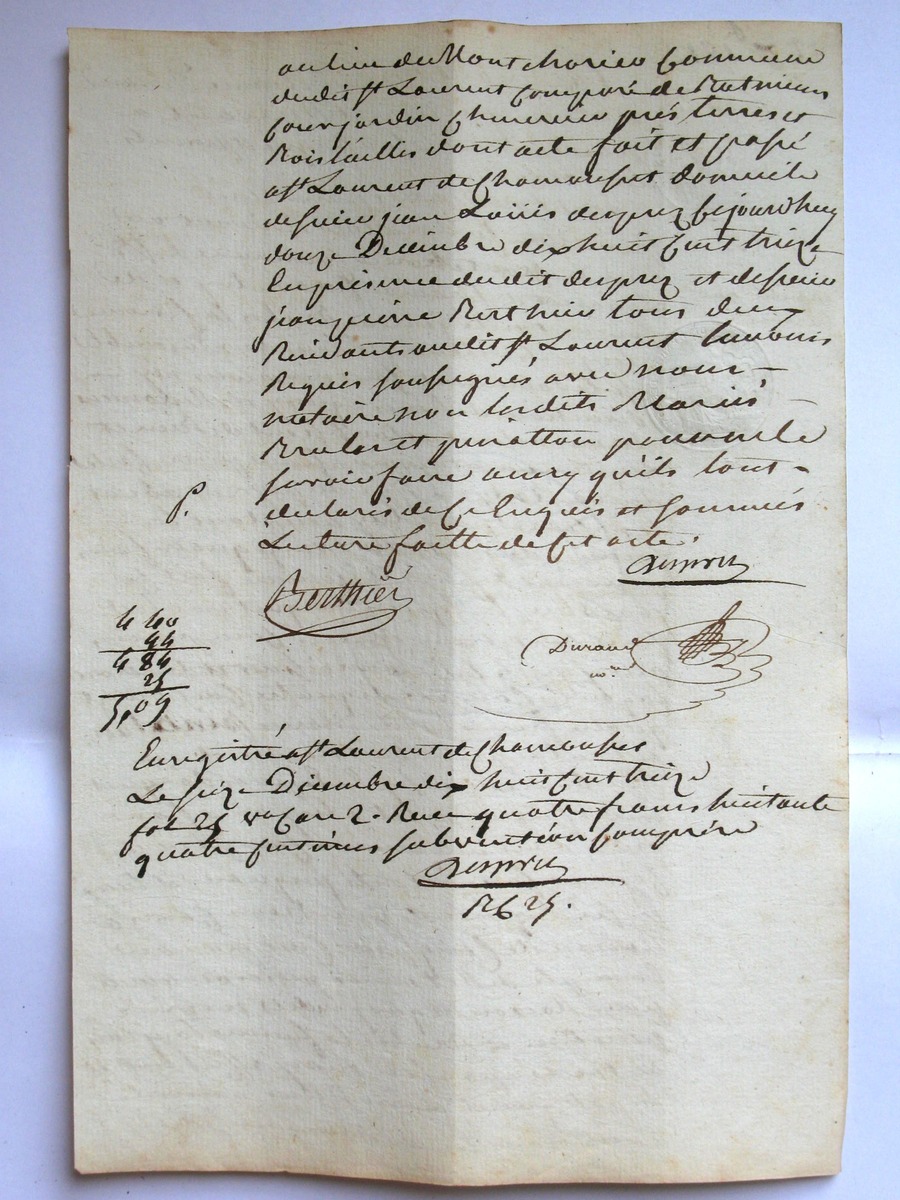 au lieu du Montchorier Commune
dudit St Laurent composé de Batimens
Cour jardin Cheneviere prés terres et
Bois taillés dont acte fait et passé
a St Laurent de Chamousset domicile
de sieur jean Louis desprez Cejourdhuy
douze Decembre dix huit Cent treize
En presence dudit desprez et de sieur
jean pierre Berthier tous deux
Residants audit St Laurent temoins
Requis soussignés avec nous
notaire non lesdits Mariés
et pour ne le
savoir faire ainsy quils l'ont
declarés de Ce Enquis et sommés
Lecture faitte de Cet acte.
P.
Desprez
Berthier
Durand
nre
4 40
44
4 84
25
5,09
Enregistré a St Laurent de Chamousset
Le seize Decembre dix huit Cent treize
fol 25 vo Case 2. Recu quatre francs huitante
quatre Centimes subvention Comprise
Desprez
R 6 25.